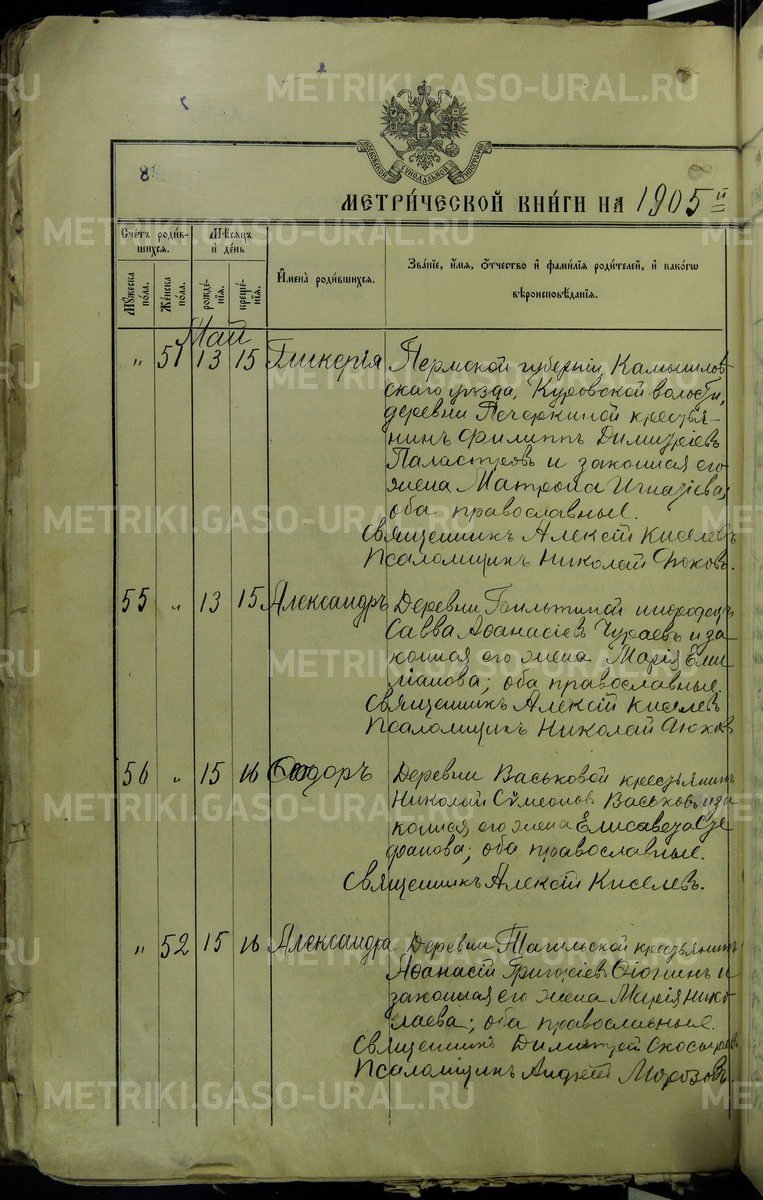 МЕТРИЧЕСКОЙ КНИГИ НА 1905 й
Счетъ родившихся.
Мужеска пола.
Женска пола.
Мѣсяцъ и день
рожденія.
крещенія.
Имена родившихся.
Званіе, имя, отчество и фамилія родителей, и какого
вѣроисповѣданія.
Май
" 51 13 15 Гликерія Пермской губерніи, Камышлов
скаго уѣзда, Куровской волости,
деревни Печеркиной крестья-
нинъ Филиппъ Димитріевъ
и законная его
жена Матрона Игнатіева;
оба православные.
Священникъ Алексій Киселевъ
Псаломщикъ Николай
55 " 13 15 Александръ Деревни инородецъ
Савва Аѳанасіев Чураевъ и за
конная его жена Марія Еми
ліанова; оба православные.
Священникъ Алексій Киселевъ
Псаломщикъ Николай
56 " 15 16 Ѳеодоръ Деревни Васьковой крестьянинъ
Николай Сѵмеонов Васьковъ и за
конная его жена Елисавета Сте
фанова; оба православные.
Священникъ Алексій Киселевъ.
" 52 15 16 Александра Деревни Тагильской крестьянинъ
Аѳанасій Григоріев и
законная его жена Марія Нико
лаева; оба православные.
Священникъ Димитрій
Псаломщикъ Андрей Морозовъ.
METRIKI.GASO-URAL.RU